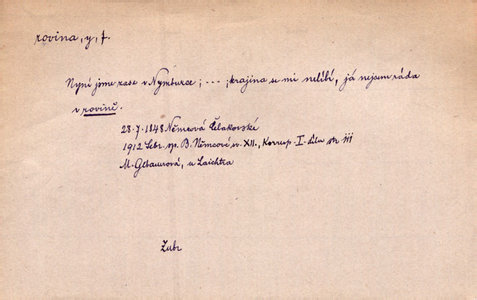 rovina, y, f.
Nyní jsme zase v Nymburce; ...; krajina se mi nelíbí, já nejsem ráda
v rovině.
28.7.1848 Němcová Čelakovské
1912 Sebr. sp. B. Němcové sv. XII., Koresp. I. díl, str. 111
M. Gebauerová, u Laichtra